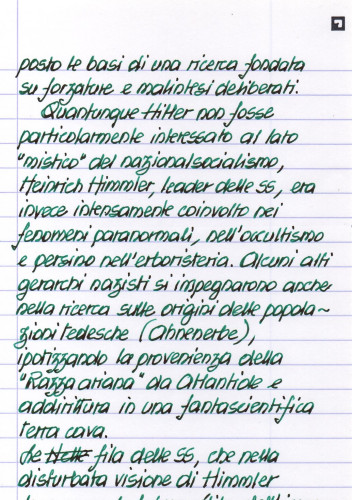 posto le basi di una ricerca fondata
su forzature e malintesi deliberati.
Quantunque Hitler non fosse
particolarmente interessato al lato
"mistico" del nazionalsocialismo,
Heinrich Himmler, leader delle SS, era
invece intensamente coinvolto nei
fenomeni paranormali, nell'occultismo
e persino nell'erboristeria. Alcuni alti
gerarchi nazisti si impegnarono anche
nella ricerca sulle origini delle popola~
zioni tedesche (Ahnenerbe),
ipotizzando la provenienza della
"Razza ariana" da Atlantide e
addirittura in una fantascientifica
terra cava.
Le fila delle SS, che nella
disturbata visione di Himmler